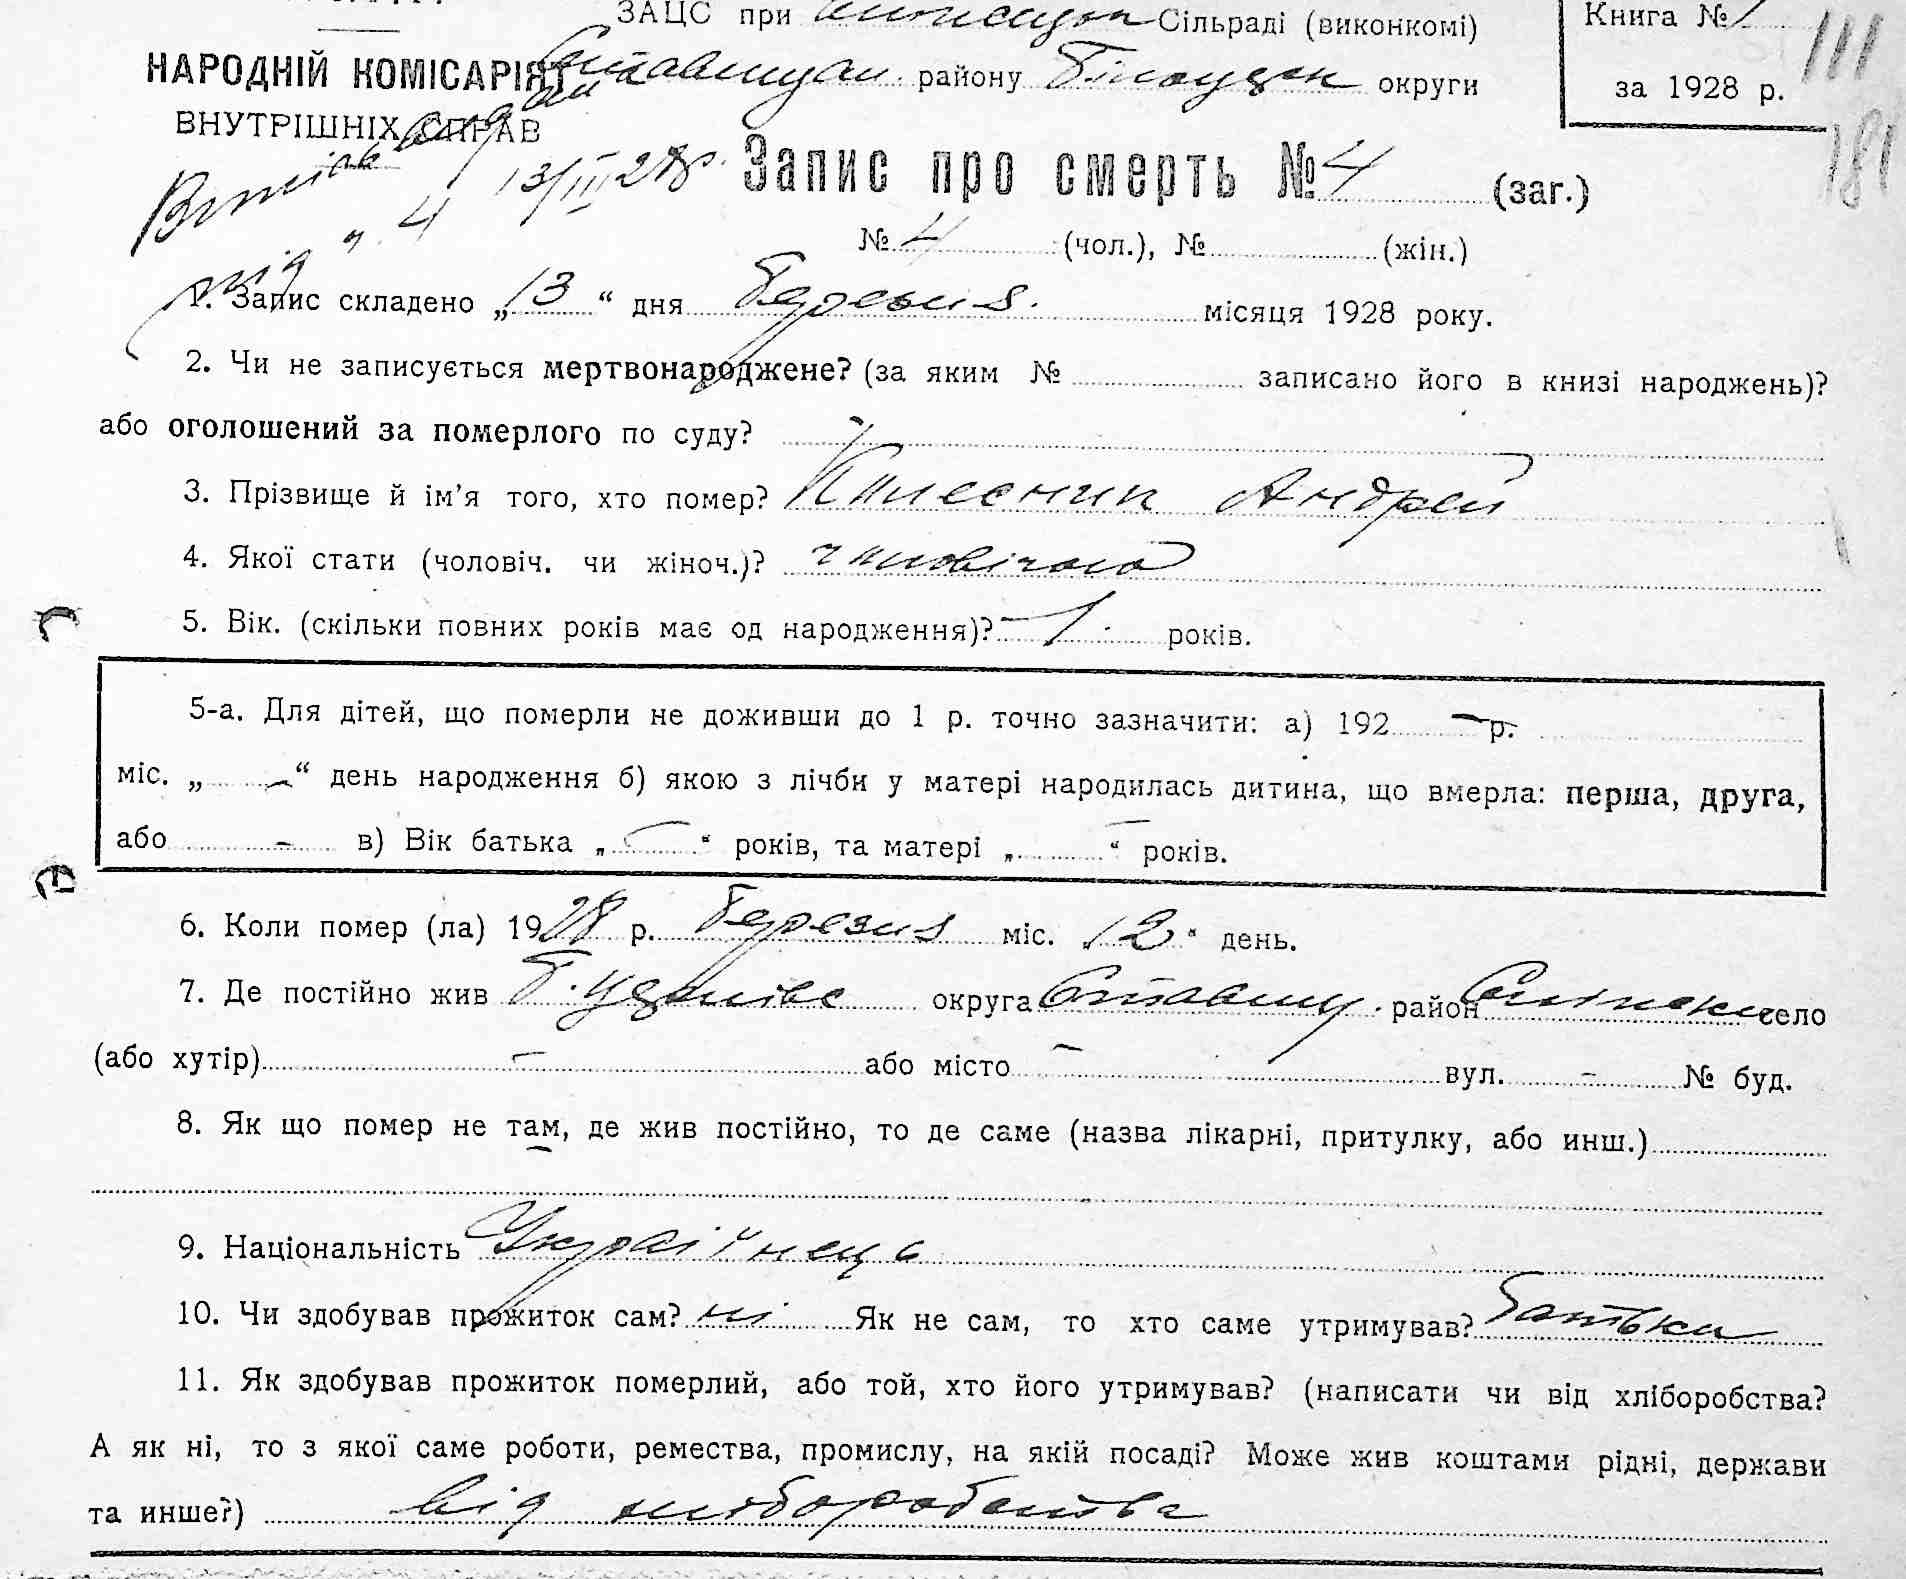 ЗАЦС при Сільраді (виконкомі)
Книга № 1
111
НАРОДНІЙ КОМІСАРІЯТ
району Білоцерк округи
за 1928 р.
ВНУТРІШНІХ СПРАВ
181
13/III 28р.
Запис про смерть № 4 (заг.)
від „ 4
№ 4 (чол.), № (жін.)
1. Запис складено „13“ дня березня місяця 1928 року.
2. Чи не записується мертвонароджене? (за яким № записано його в книзі народжень)?
або оголошений за померлого по суду?
3. Прізвище й ім’я того, хто помер? Колесник Андрей
4. Якої стати (чоловіч. чи жіноч.)? чоловічого
5. Вік. (скільки повних років має од народження)? 1 років.
5-а. Для дітей, що померли не доживши до 1 р. точно зазначити: а) 192 — р.
міс. „ — “ день народження б) якою з лічби у матері народилась дитина, що вмерла: перша, друга,
або — в) Вік батька „ — “ років, та матері „ — “ років.
6. Коли помер (ла) 1928 р. березня міс. „12“ день.
7. Де постійно жив округа Ставищ. район село
(або хутір) — або місто — вул. - № буд.
8. Як що помер не там, де жив постійно, то де саме (назва лікарні, притулку, або инш.)
9. Національність Украінець
10. Чи здобував прожиток сам? ні Як не сам, то хто саме утримував? батьки
11. Як здобував прожиток померлий, або той, хто його утримував? (написати чи від хліборобства?
А як ні, то з якої саме роботи, ремества, промислу, на якій посаді? Може жив коштами рідні, держави
та инше?) від хліборобства